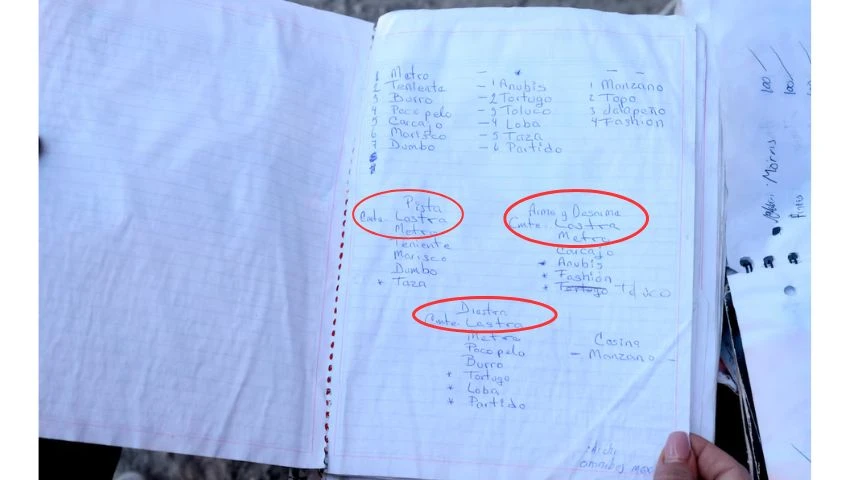 1 Metro
2 Teniente
3 Burro
4 Pocopelo
5 Carcajo
6 Marisco
7 Dumbo
8
- 1 Anubis
- 2 Tortugo
- 3 Toluco
- 4 Loba
- 5 Taza
- 6 Partido
1 Manzano
2 Topo
3 Jalapeño
4 Fashion
Pista
Cmte. Lastra
Metro
Teniente
Marisco
Dumbo
* Taza
Arme y Desarme
Cmte. Lastra
Metro
Carcajo
* Anubis
* Fashion
* Tortugo
Diestra
Cmte. Lastra
Metro
Pocopelo
Burro
* Tortugo
* Loba
* Partido
Cosina
- Manzano -
omnibus mex
100
100
Morris